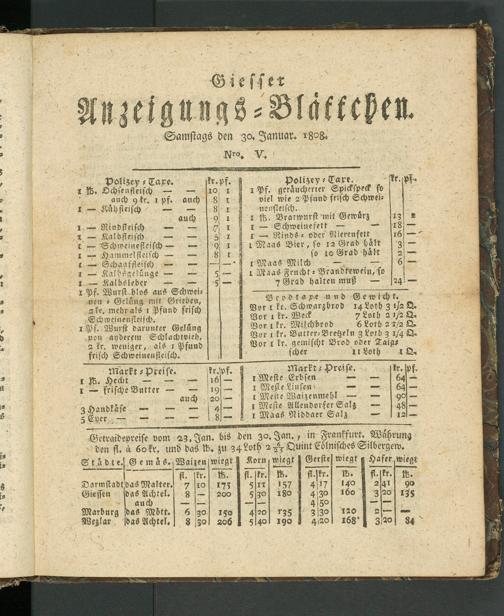 Giesser
Anzeigungs-Blättchen.
Samstags den 30. Januar. 1808.
Nro. V.
Polizey-Taxe. kr. pf.
1 ℔. Ochsenfleisch — — 10 1
auch 9 kr. 1 pf. auch 8 1
1 — Kühfleisch — — 8 1
auch 9 1
1 — Rindfleisch — — 7 1
1 — Kalbfleisch — — 5 1
1 — Schweinefleisch — — 9 1
1 — Hammelfleisch — — 8 1
1 — Schaaffleisch — — — —
1 — Kalbsgelünge — — 5 —
1 — Kalbsleder — — 5 —
1 Pf. Wurst blos aus Schwei-
nen-Gelüng mit Grieben,
2 kr. mehr als 1 Pfund frisch
Schweinenfleisch.
1 Pf. Wurst darunter Gelüng
von anderem Schlachtvieh,
2 kr. weniger, als 1 Pfund
frisch Schweinenfleisch.
Polizey-Taxe. kr. pf.
1 Pf. geräucherter Spickspeck so
viel wie 2 Pfund frisch Schwei-
nenfleisch.
1 ℔. Bratwurst mit Gewürz 13 2
1 — Schweinefett — — 18 —
1 — Rinds- oder Nierenfett 16 —
1 Maas Bier, so 12 Grad hält 3 —
so 10 Grad hält 2 —
1 Maas Milch 6 —
1 Maas Frucht-Brandtewein, so
7 Grad halten muß — 24 —
Brodtaxe und Gewicht.
Vor 1 kr. Schwarzbrod 14 Loth 3 1/2 Q.
Vor 1 kr. Weck 7 Loth 2 1/2 Q.
Vor 1 kr. Milchbrod 6 Loth 2 1/2 Q.
Vor 1 kr. Butter-Bretzeln 3 Loth Q.
Vor 1 kr. gemischt Brod oder Taigs
scher 11 Loth 1 Q.
Markt-Preise. kr. pf.
1 ℔. Hecht — — 16 —
1 — frische Butter — — 19 —
auch 20 —
3 Handkäse — — 4 —
5 Eyer — — 8 —
Markt-Preise. kr. pf.
1 Meste Erdsen 64 —
1 Meste Linsen 64 —
1 Meste Waizenmehl — 90 —
1 Meste Allendorfer Salz 48 —
1 Maas Niddaer Salz — 12 —
Getraidepreise vom 23. Jan. bis den 30. Jan., in Frankfurt. Währung
den fl. à 60 kr. und das ℔. zu 34 Loth 2 Quint Cölnisches Silbergew.
Städte. Gemäs. Waizen wiegt Korn wiegt Gerste wiegt Hafer wiegt
fl. kr. ℔. fl. kr. ℔. fl. kr. ℔. fl. kr. ℔.
Darmstadt das Malter. 7 10 175 5 11 157 4 17 140 2 41 90
Giessen das Achtel. 8 — 200 5 30 180 4 30 160 3 20 135
auch — — — — 4 50 — —
Marburg das Mött. 6 30 150 4 20 135 3 30 120 2 —
Wezlar das Achtel. 8 30 206 5 40 190 4 20 168 3 20 84